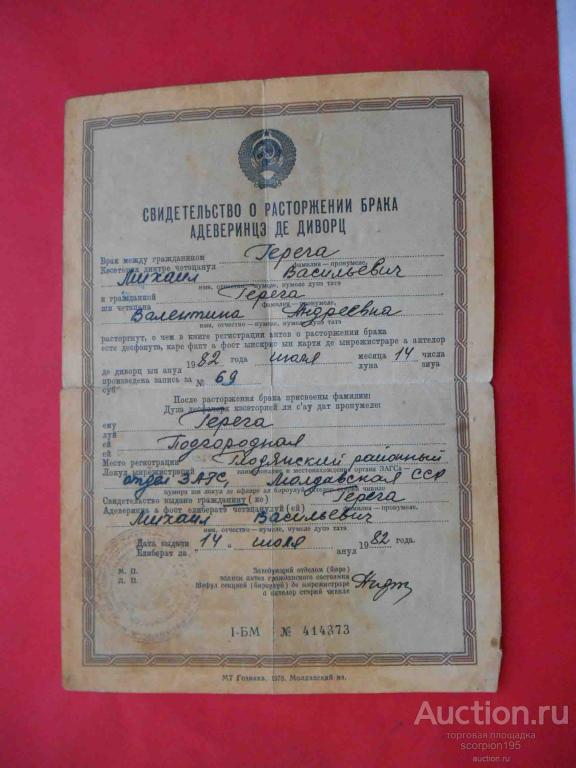 СВИДЕТЕЛЬСТВО О РАСТОРЖЕНИИ БРАКА
АДЕВЕРИНЦЭ ДЕ ДИВОРЦ
Брак между гражданином Герега
Кэсетория динтре четэцанул фамилия — пронумеле,
Михаил Васильевич
имя, отчество — нумеле, нумеле дупэ татэ
и гражданкой Герега
ши четэцана фамилия — пронумеле,
Валентина Андреевна
имя, отчество — нумеле, нумеле дупэ татэ
расторгнут, о чем в книге регистрации актов о расторжении брака
есте десфэкутэ, каре фапт а фост ынскрис ын картя де ынрежистраре а актелор
1982 года июля месяца 14 числа
де диворц ын анул луна зиуа
произведена запись за № 69
суб
После расторжения брака присвоены фамилии:
Дупэ десфачеря кэсеторией ли с'ау дат пронумеле:
ему Герега
луй
ей Подгородная
ей
Место регистрации Глодянский районный
Локул ынрежистрэрий наименование и местонахождение органа ЗАГСа
отдел ЗАГС, Молдавская ССР
Свидетельство выдано гражданину (ке) Герега
Адеверинца а фост елибератэ четэцанулуй (ей) фамилия — пронумеле,
Михаил Васильевич
имя, отчество — нумеле, нумеле дупэ татэ
Дата выдачи „14" июля 1982 года.
Елиберат ла анул
М. П.
Л. П.
Заведующий отделом (бюро)
записи актов гражданского состояния
Шефул секцией (бироулуй) де ынрежистраре
а актелор стэрий чивиле
I-БМ № 414373
МТ Гознака. 1978. Молдавский яз.
Auction.ru
торговая площадка
scorpion195
auction.ru